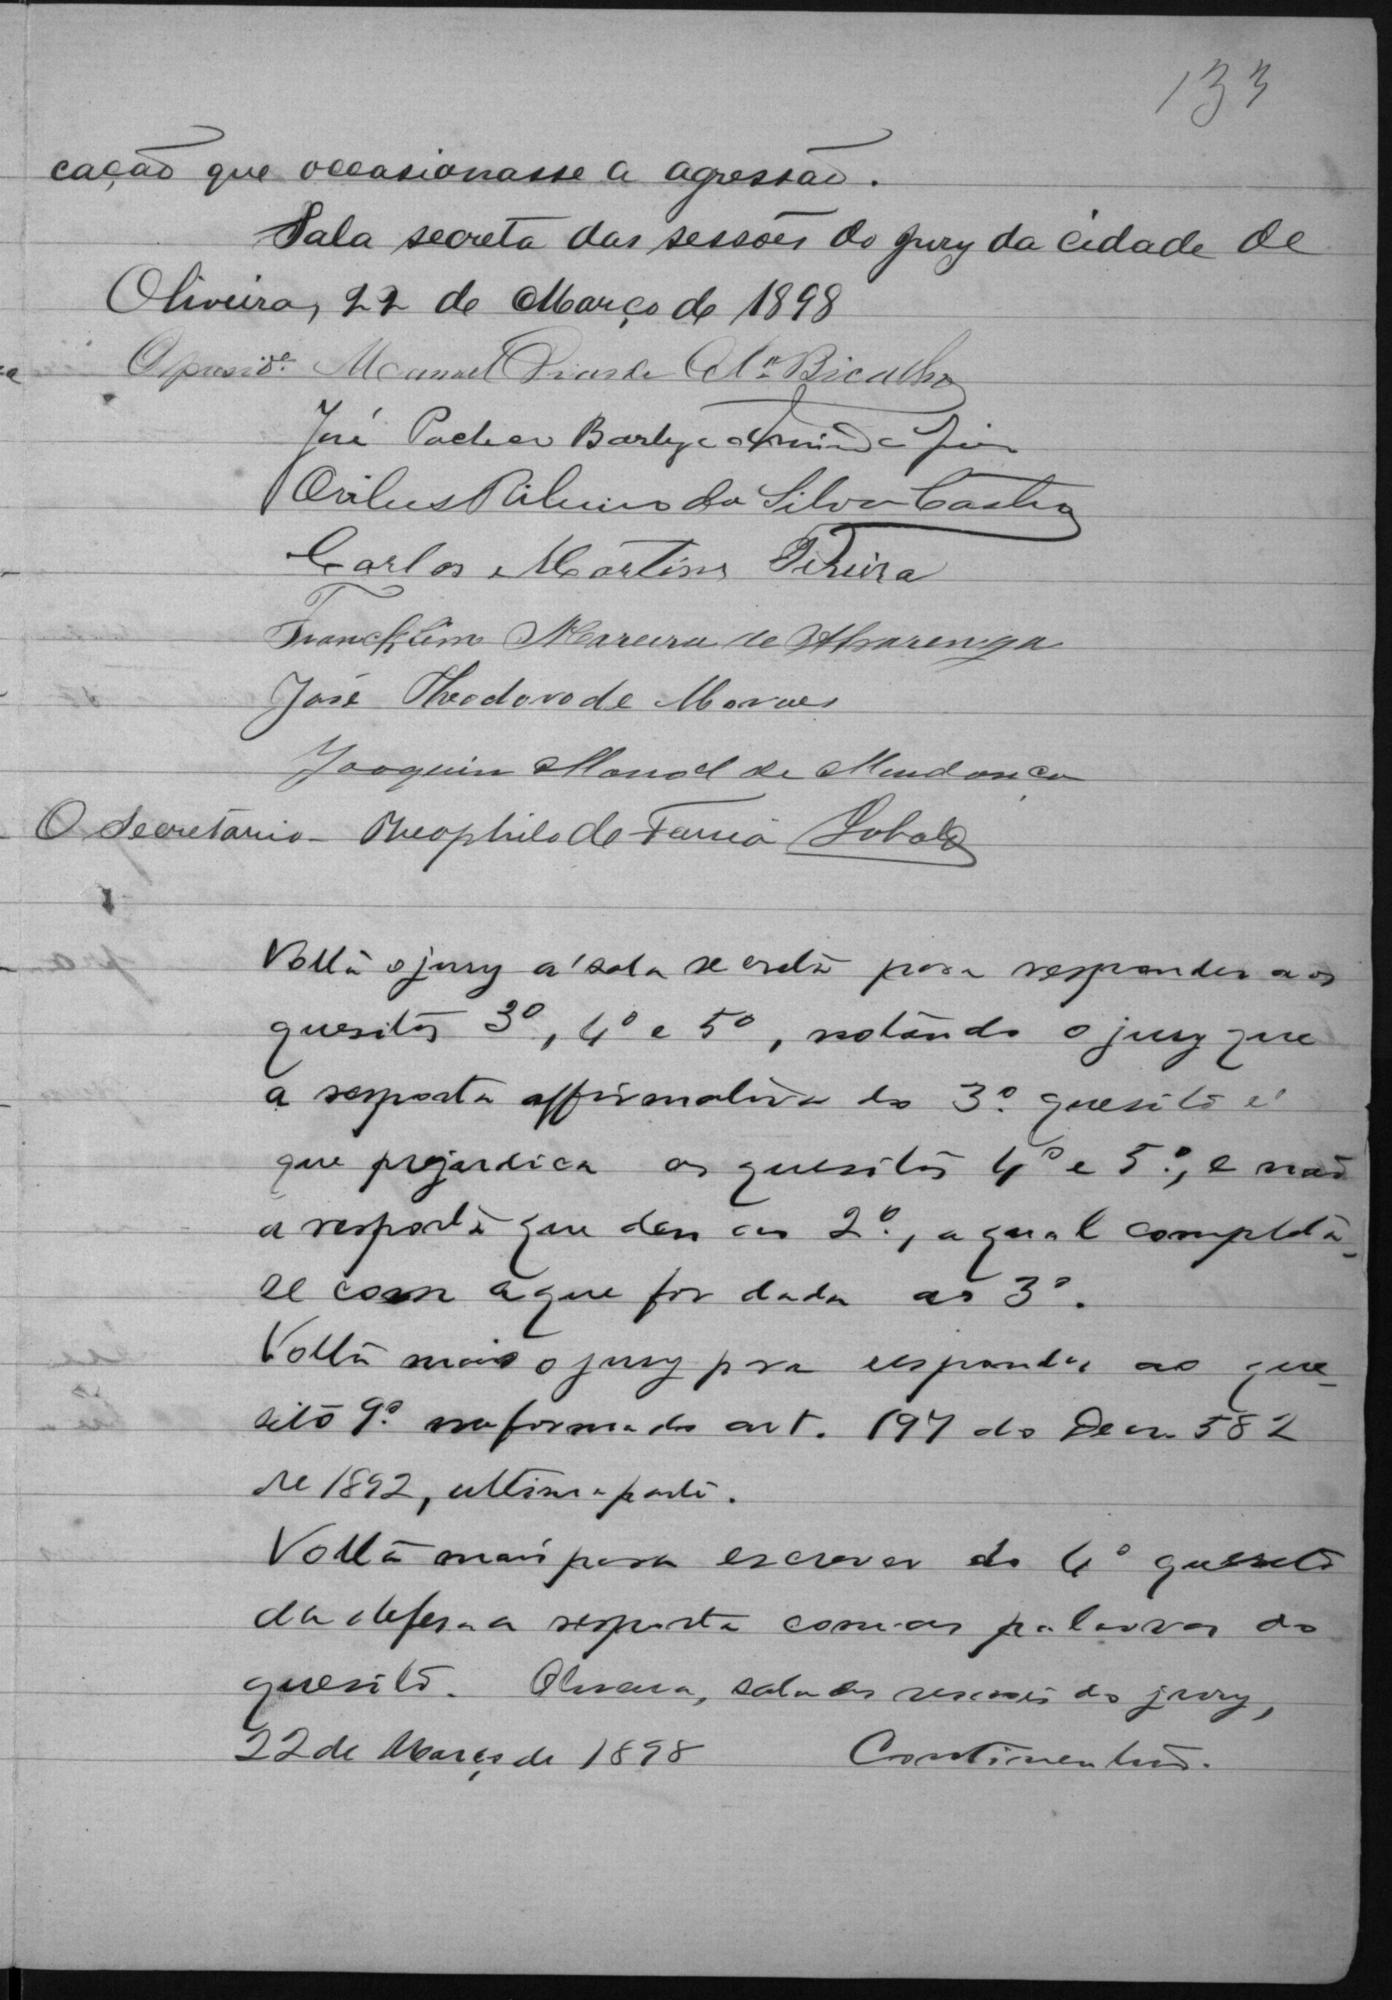 133
cação que occasionasse a agressão.
Sala secreta das sessões do jury da cidade de
Oliveira, 22 de Março de 1898
O presidᵉ. Manoel Dias de Bicalho
José Pacheco
Ribeiro da Silva Castro
Carlos Martins Pereira
Francklim Moreira de Alvarenga
José Theodoro de Moraes
Joaquim Manoel de Mendonça
O Secretario - Theophilo de Faria Lobato
Volta o jury a' sala secreta para responder aos
quesitos 3º, 4º e 5º, notando o jury que
a resposta affirmativa do 3º. quesito é
que prejudica os quesitos 4º e 5º., e não
a resposta que deu ao 2º., a qual completa-
se com a que for dada ao 3º.
Volta mais o jury para responder ao que-
sito 9º. na forma do art. 197 do Decr. 582
de 1892, ultima parte.
Volta mais para escrever do 4º quesito
da defesa a resposta com as palavras do
quesito. Oliveira, sala das sessões do jury,
22 de Março de 1898 Continentino.